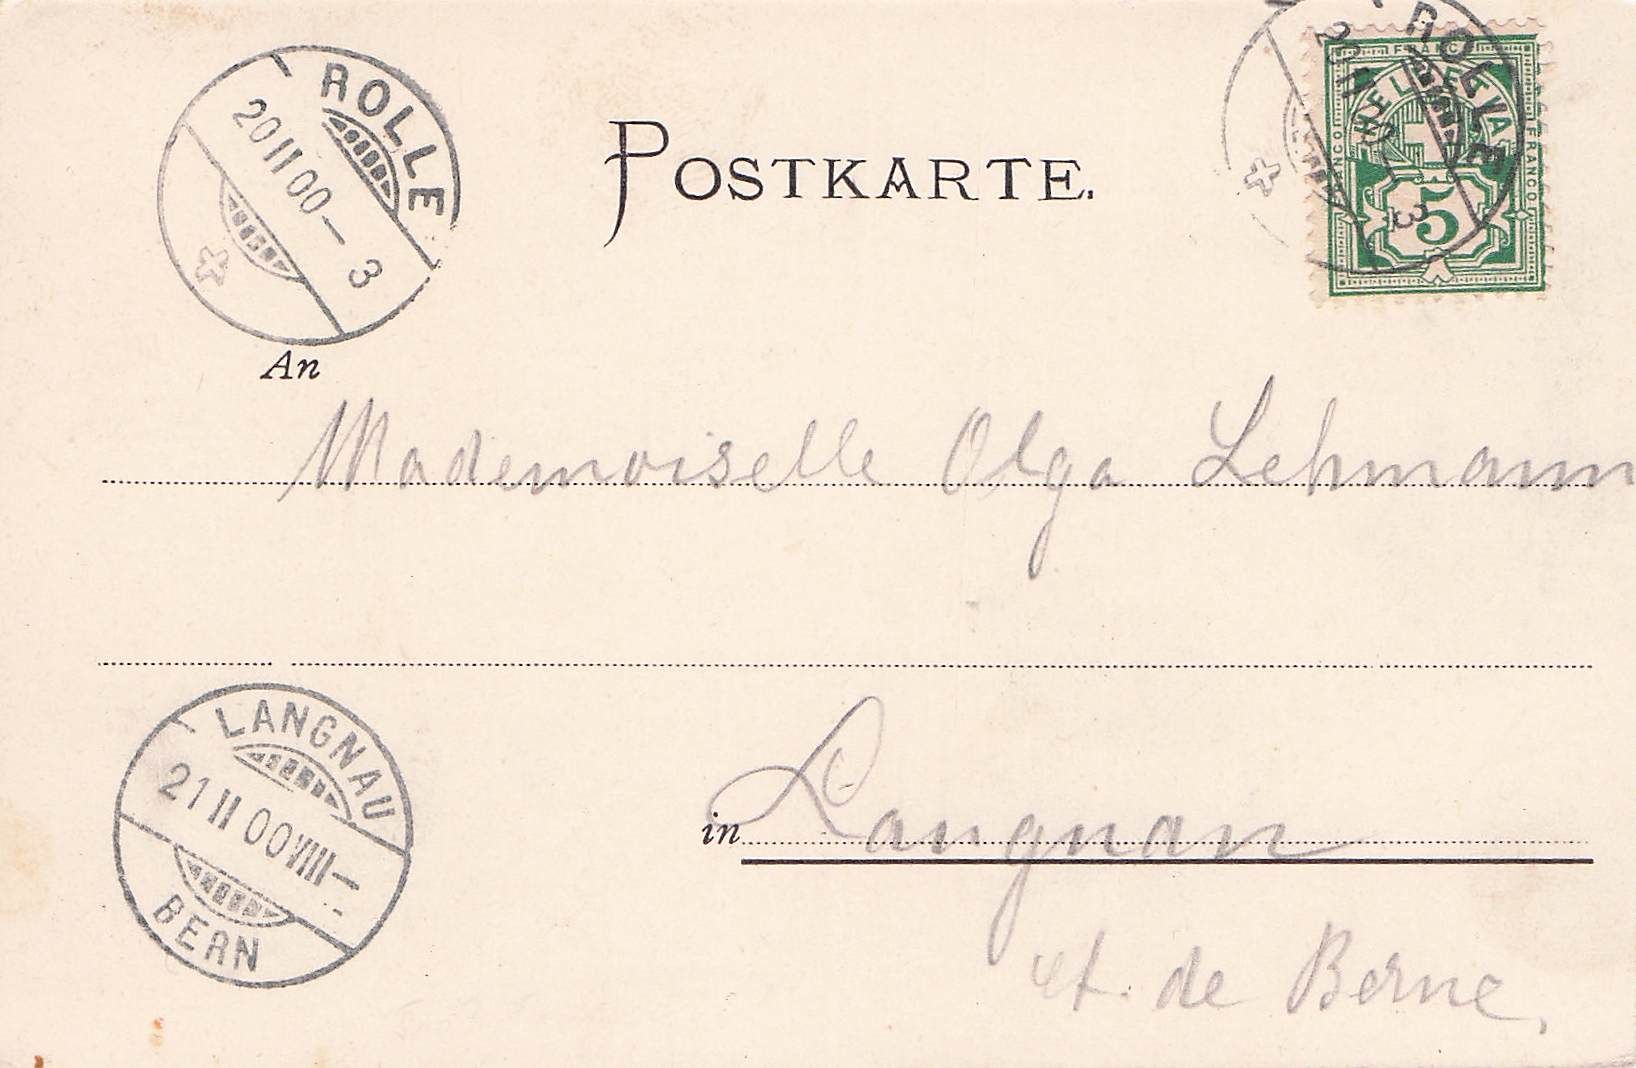 ROLLE
20 II 00 – 3
POSTKARTE.
ROLLE
20 II
3
FRANCO
HELVETIA
FRANCO
FRANCO
5
An
Mademoiselle Olga Lehmann
LANGNAU
21 II 00 VIII –
BERN
in Langnau
ct. de Berne,